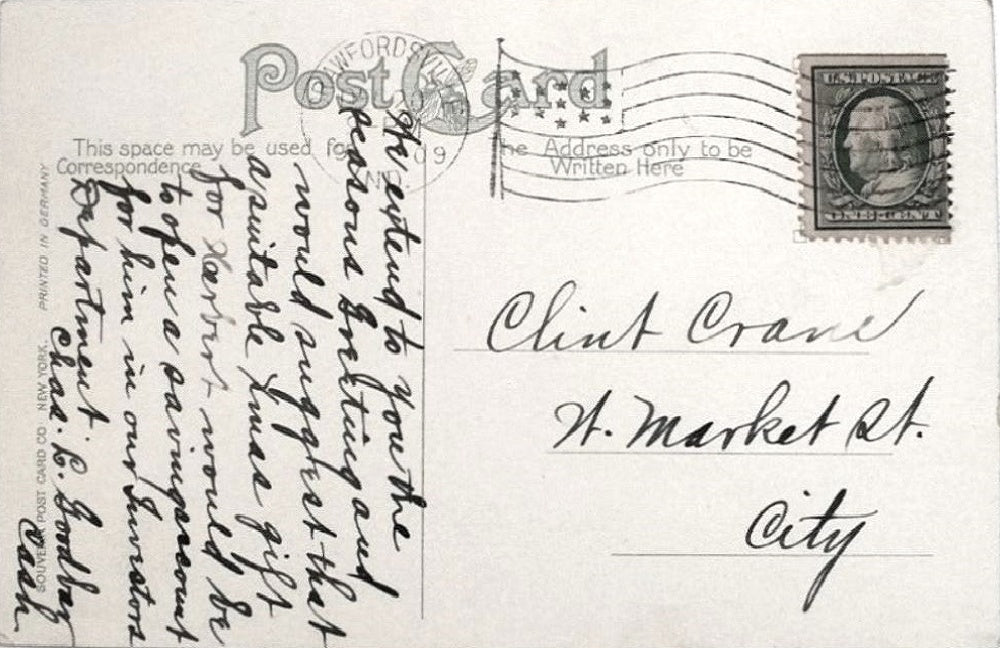 Post Card
This space may be used for
Correspondence
the Address only to be
Written Here
CRAWFORDSVILLE
09
U.S. POSTAGE
ONE CENT
We extend to you the
seasons Greeting and
would suggest that
a suitable Xmas gift
for Herbert would be
to open a savings account
for him in our Investors
Department.
Chas. L. Goodbar
Cash.
Clint Crane
W. Market St.
City
SOUVENIR POST CARD CO. NEW YORK. PRINTED IN GERMANY